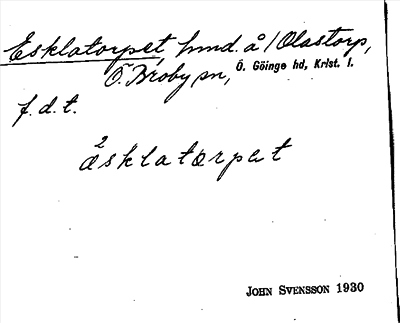 Esklatorpet, hmd. å / Olastorp,
Ö. Broby sn, Ö. Göinge hd, Krist. l.
f. d. t.
2
æsklatorpet
JOHN SVENSSON 1930